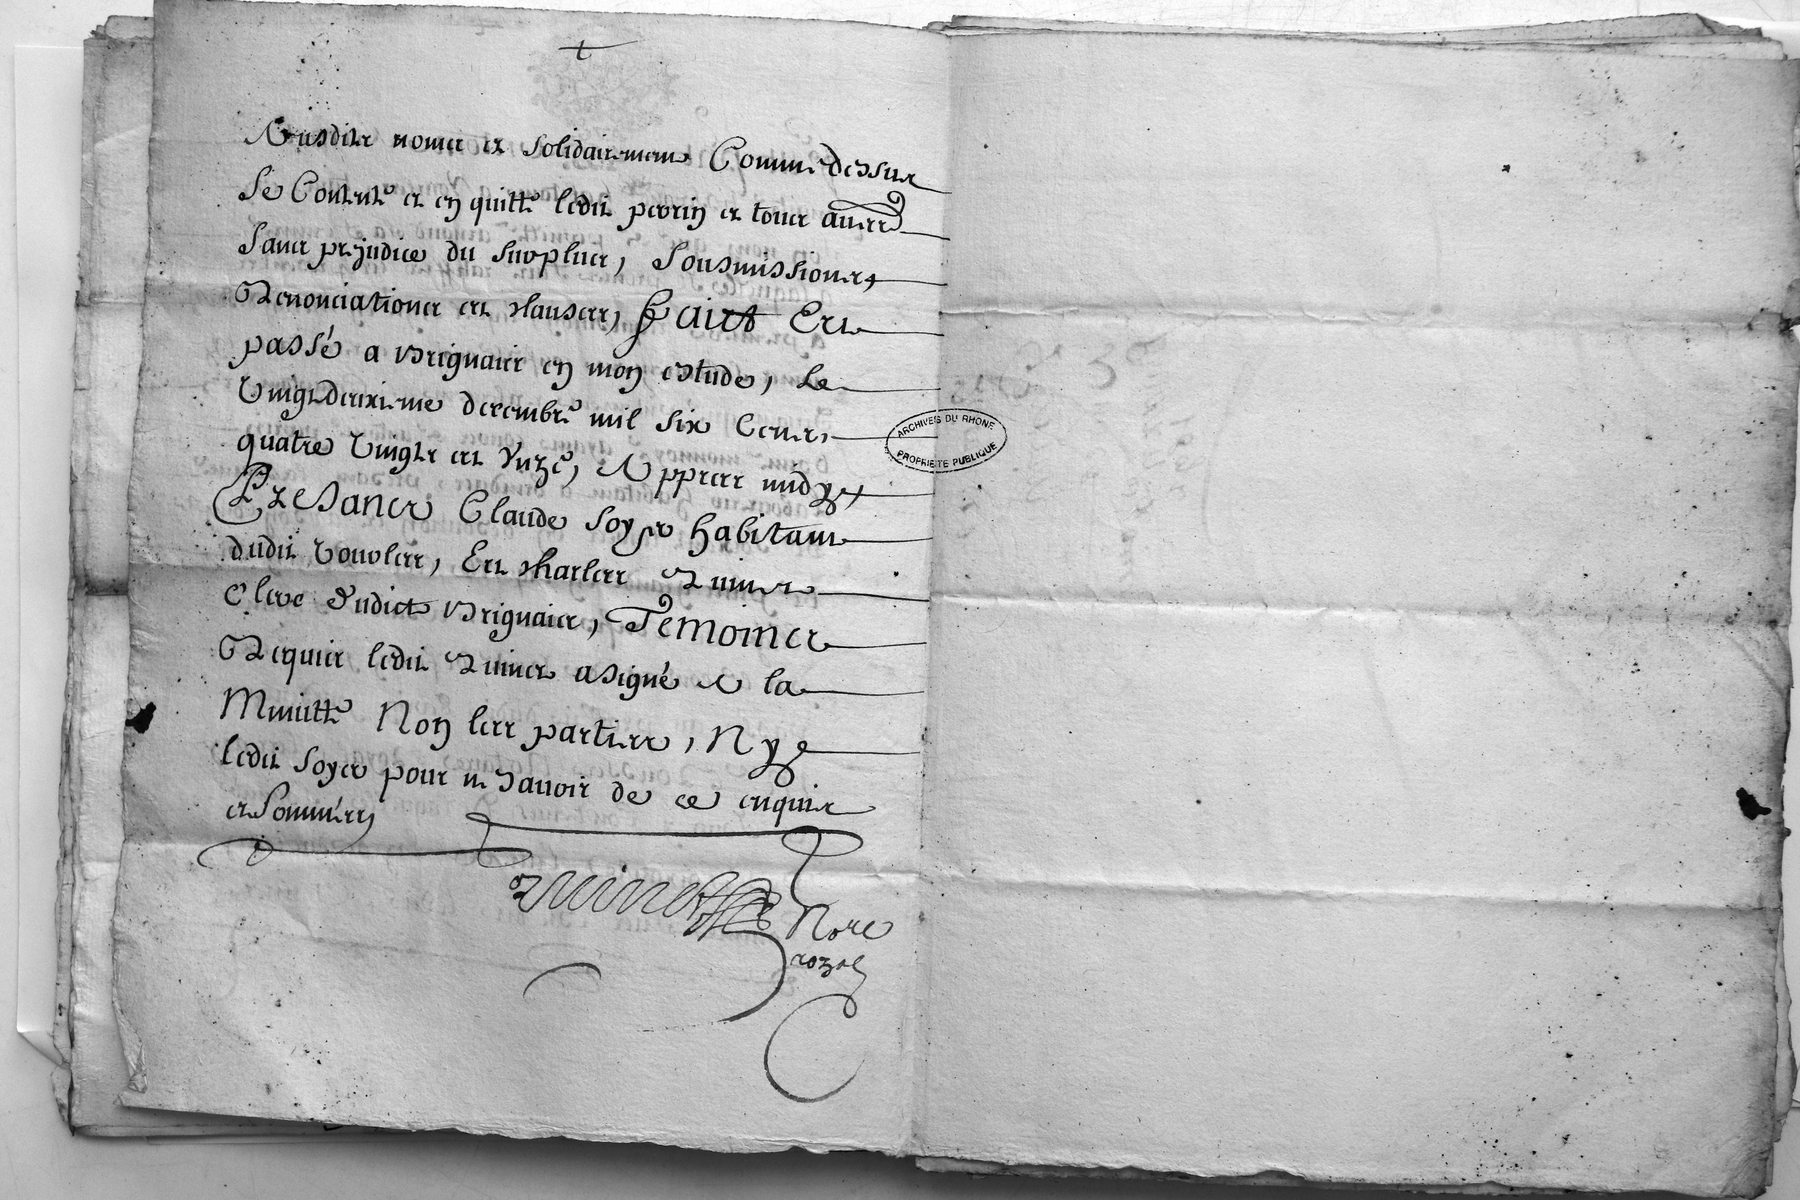 Ausdits noms et solidairement Comme dessus
se Contente et en quitte ledit perrin et tous autres
sans prejudice du surplus, sousmissions,
Renonciations et clauses, faict Et
passé a Brignais en mon estude, Le
vingtdeuxieme decembre mil six Cents
quatre vingts et unze, Appres midy
Presants Claude soyer habitant
dudit vourles, Et charles Ruinet
Clerc dudict Brignais, Temoins
Requis ledit Ruinet a signé A la
Minutte Non les parties, Ny
ledit soyer pour ne savoir de ce enquis
et sommés
Ruinet
Nore
rozal
ARCHIVES DU RHONE
PROPRIETE PUBLIQUE